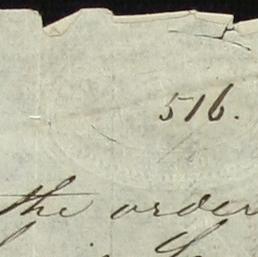 516.
the order